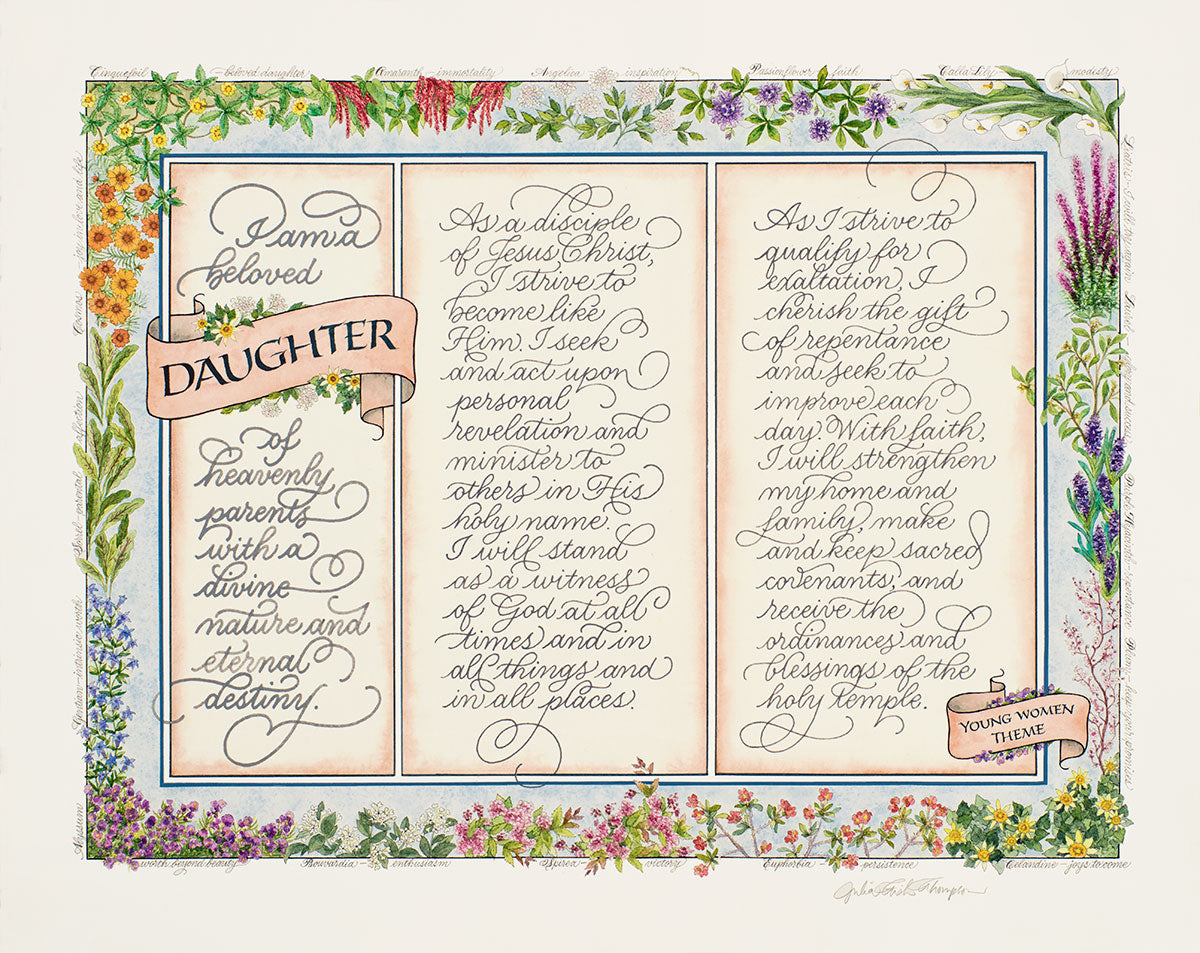 Cinquefoil – beloved daughter
Amaranth – immortality
Angelica – inspiration
Passionflower – faith
Calla Lily – modesty
I am a
beloved
DAUGHTER
of
heavenly
parents
with a
divine
nature and
eternal
destiny.
As a disciple
of Jesus Christ,
I strive to
become like
Him. I seek
and act upon
personal
revelation and
minister to
others in His
holy name.
I will stand
as a witness
of God at all
times and in
all things and
in all places.
As I strive to
qualify for
exaltation, I
cherish the gift
of repentance
and seek to
improve each
day. With faith,
I will strengthen
my home and
family, make
and keep sacred
covenants, and
receive the
ordinances and
blessings of the
holy temple.
YOUNG WOMEN
THEME
Sorrel – parental affection
Gentian – intrinsic worth
Alyssum – worth beyond beauty
Bouvardia – enthusiasm
Spirea – victory
Euphorbia – persistence
Celandine – joys to come
Liatris – I will try again
Plum – keep your promises
Julia
Thompson